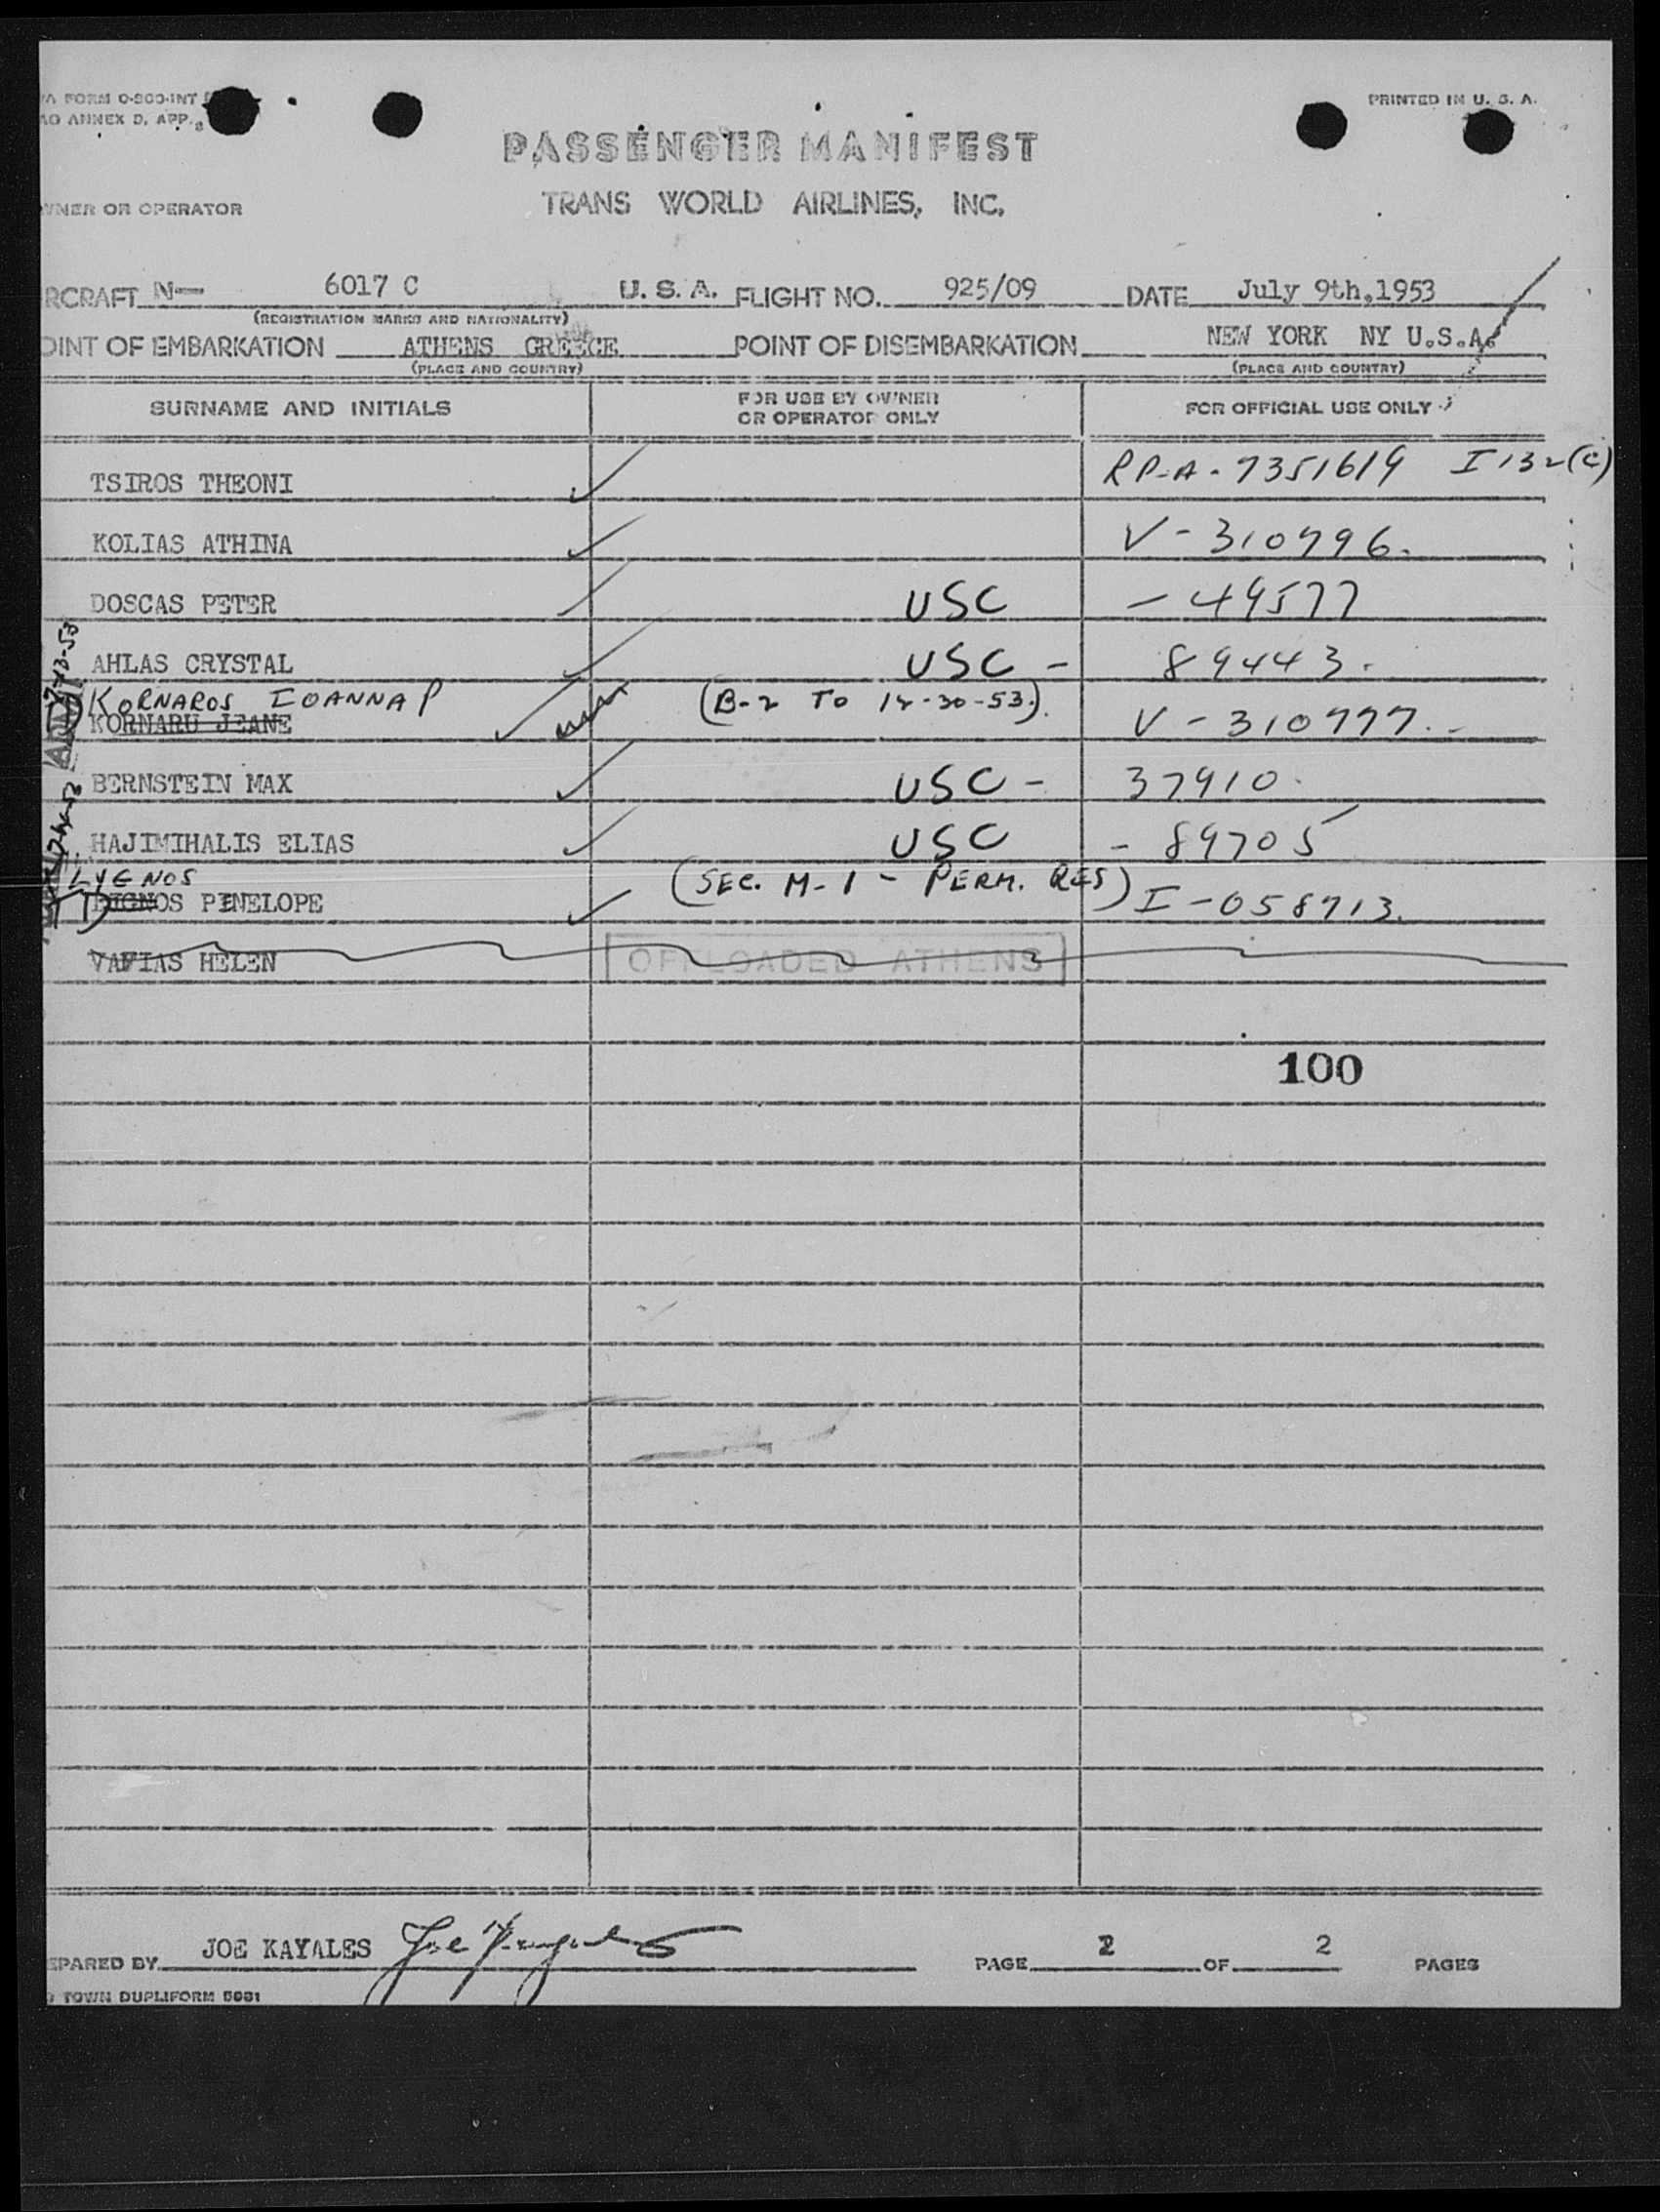 A FORM O-900-INT
AO ANNEX D, APP. 3
PRINTED IN U. S. A.
PASSENGER MANIFEST
WNER OR OPERATOR
TRANS WORLD AIRLINES, INC.
RCRAFT N— 6017 C U. S. A. FLIGHT NO. 925/09 DATE July 9th,1953
(REGISTRATION MARKS AND NATIONALITY)
OINT OF EMBARKATION ATHENS GREECE POINT OF DISEMBARKATION NEW YORK NY U.S.A.
(PLACE AND COUNTRY) (PLACE AND COUNTRY)
SURNAME AND INITIALS FOR USE BY OWNER OR OPERATOR ONLY FOR OFFICIAL USE ONLY
TSIROS THEONI RP-A-7351619 I 132(c)
KOLIAS ATHINA V-310796.
DOSCAS PETER USC - 49577
AHLAS CRYSTAL USC - 89443.
KORNAROS IOANNA P (B-2 TO 12-30-53).
KORNARU JEANE V-310777.
BERNSTEIN MAX USC - 37910.
HAJIMIHALIS ELIAS USC - 89705
LYGNOS (SEC. M-1 - PERM. RES)
OS PENELOPE I-058713.
VAFIAS HELEN OFFLOADED ATHENS
100
EPARED BY JOE KAYALES Joe Kayales PAGE 2 OF 2 PAGES
TOWN DUPLIFORM 5981